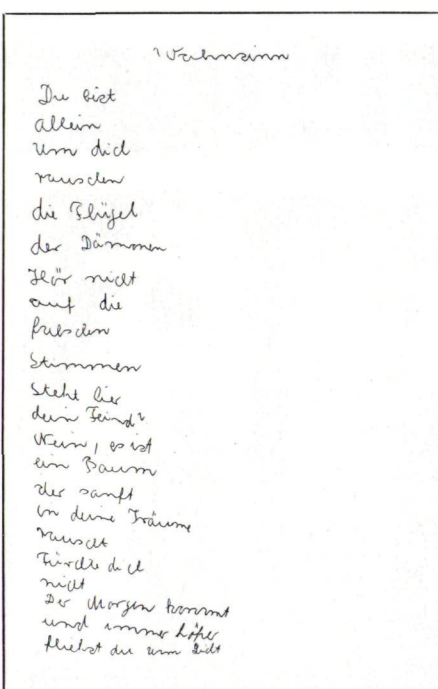 Wahnsinn
Du bist
allein
Um dich
rauschen
die Flügel
der Dämonen
Hör nicht
auf die
falschen
Stimmen
Steht hier
dein Feind?
Nein, es ist
ein Baum
der sanft
in deine Träume
rauscht
Fürchte dich
nicht
Der Morgen kommt
und immer höher
fliehst du um Licht